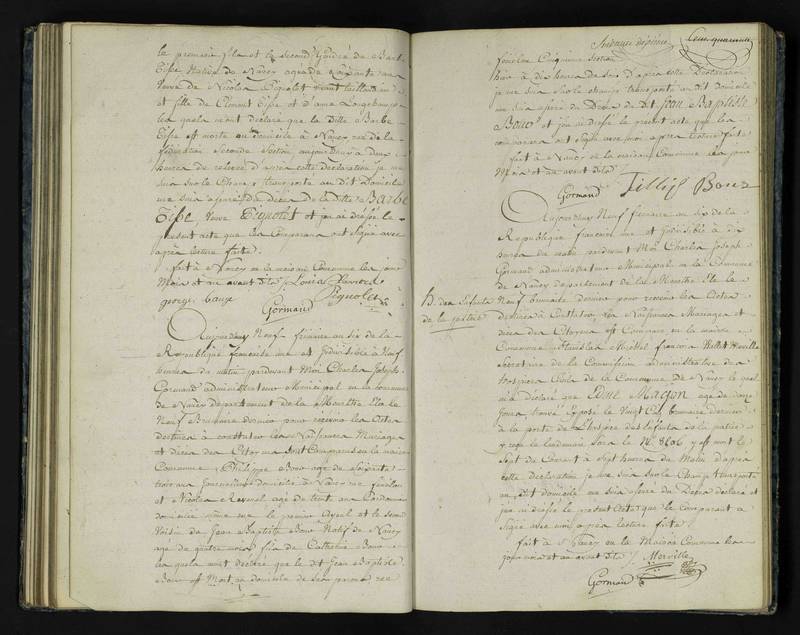 la premiere fila et le Second Gendre de Barbe
Tisse Native de Nancy agée de Soixante ans
Veuve de Nicolas Pignolet vivant taillandier
et fille de Clement Tisse et d'anne Longchamp
les quels mont déclaré que la ditte Barbe
Tisse est morte au domicile à Nancy rue de la
fédération Seconde Section aujourdhuy à deux
heures de relevée d'après cette Déclaration je me
suis sur le Champ transporté au Dit Domicile
me suis assuré du décès de la ditte Barbe
Tisse Veuve Pignolet et j'en ai dressé le
présent acte que les Comparans ont Signé avec
après lecture faite.
fait à Nancy en la maison Commune les jour
Mois et an avant dits Louis Pariset
george cause Pignolet
Gormand
Aujourdhuy Neuf frimaire an six de la
République françoise une et Indivisible à Neuf
heures du matin pardevant Moi Charles Joseph
Gormand administrateur Municipal en la Commune
de Nancy département de la Meurthe Elu le
Neuf Brumaire dernier pour recevoir les Actes
destinés à constater les Naissances Mariages
et décès des Citoyens sont Comparus en la maison
Commune Philippe Bour agé de Soixante
trois ans Journalier domicilié à Nancy rue fénélon
et Nicolas Renal agé de trente ans Cordonnier
domicilié même rue le premier Ayeul et le second
Voisin de Jean Baptiste Bour Natif de Nancy
agé de quatre mois fils de Catherine Bour
les quels mont déclaré que le dit Jean Baptiste
Bour est Mort au domicile de son grand rue
Cent quarante
fénélon Cinquieme Section
hier à dix heures du Soir d'après cette Déclaration
je me suis sur le champ transporté au dit Domicile
me suis assuré du Décès du dit Jean Baptiste
Bour et j'en ai dressé le présent acte que les
comparans ont Signé avec moi après lecture faite
fait à Nancy en la maison Commune les jour
Mois et an avant dits
Gormand Fillise Bour
Aujourdhuy Neuf frimaire an six de la
République francoise une et Indivisible à dix
heures du matin pardevant Moi Charles Joseph
Gormand administrateur Municipal en la Commune
de Nancy département de la Meurthe Elu le
Neuf brumaire dernier pour recevoir les Actes
destinés à Constater les Naissances Mariages et
décès des Citoyens est Comparu en la maison
Commune Stanislas Michel françois Merville
Secretaire de la Commission administrative des
hospices Civils de la Commune de Nancy le quel
m'a Déclaré que Luc Magon agé de onze
jours, trouvé Exposé le Vingt Cinq brumaire dernier
à la porte de l'hospice des Enfants de la patrie
y reçu le lendemain Sous le N° 8606 y est mort le
Sept du Courant à Sept heures du Matin d'après
cette déclaration je me suis sur le Champ transporté
au dit domicile me suis assuré du Décès déclaré et
j'en ai dressé le présent Acte que le Comparant a
Signé avec moi après lecture faite
fait à Nancy en la Maison Commune les
jour mois et an avant dits Merville
Gormand
H. des Enfants
de la patrie